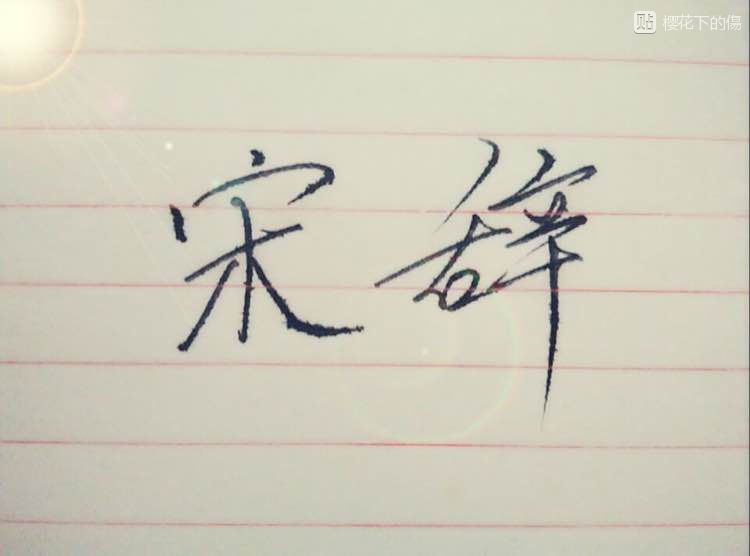 贴 樱花下的傷
宋辞